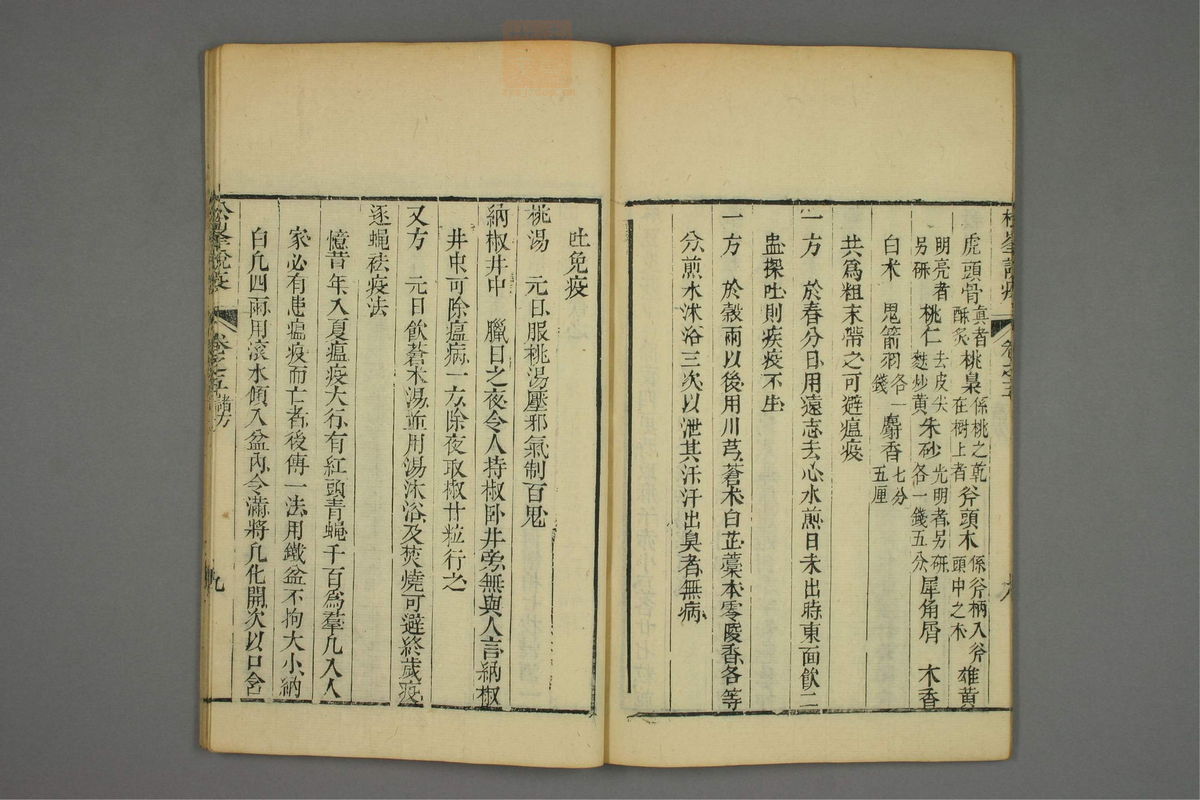 虎頭骨真者酥炙桃梟係桃之乾在樹上者斧頭木係斧柄入斧頭中之木雄黃
明亮者另硏桃仁去皮尖麩炒黃朱砂光明者另硏各一錢五分犀角屑木香
白术鬼箭羽各一錢麝香七分五厘
共爲粗末帶之可避瘟疫
一方 於春分日用遠志去心水煎日未出時東面飲二
盅探吐則疾疫不生
一方 於穀兩以後用川芎蒼术白芷藁本零陵香各等
分煎水沐浴三次以泄其汗汗出臭者無病
松峯說疫 卷之五 諸方 九
吐免疫
桃湯 元日服桃湯壓邪氣制百鬼
納椒井中 臘日之夜令人持椒卧井旁無與人言納椒
井中可除瘟病一方除夜取椒廿粒行之
又方 元日飲蒼术湯並用湯沐浴及焚燒可避終歲疫
逐蠅祛疫法
憶昔年入夏瘟疫大行有紅頭靑蠅千百爲羣凡入人
家必有患瘟疫而亡者後傳一法用鐵盆不拘大小納
白凡四兩用滾水傾入盆內令滿將凡化開次以口含